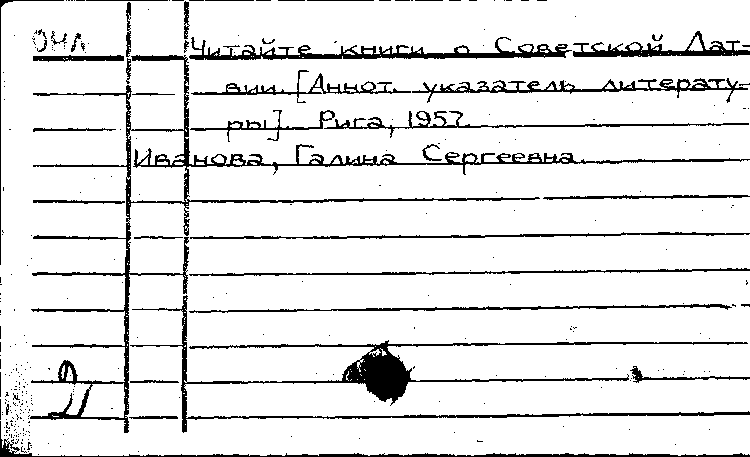 ОНЛ
Читайте книги о Советской Лат-
вии. [Аннот. указатель литерату-
ры]. Рига, 1957.
Иванова, Галина Сергеевна.
21